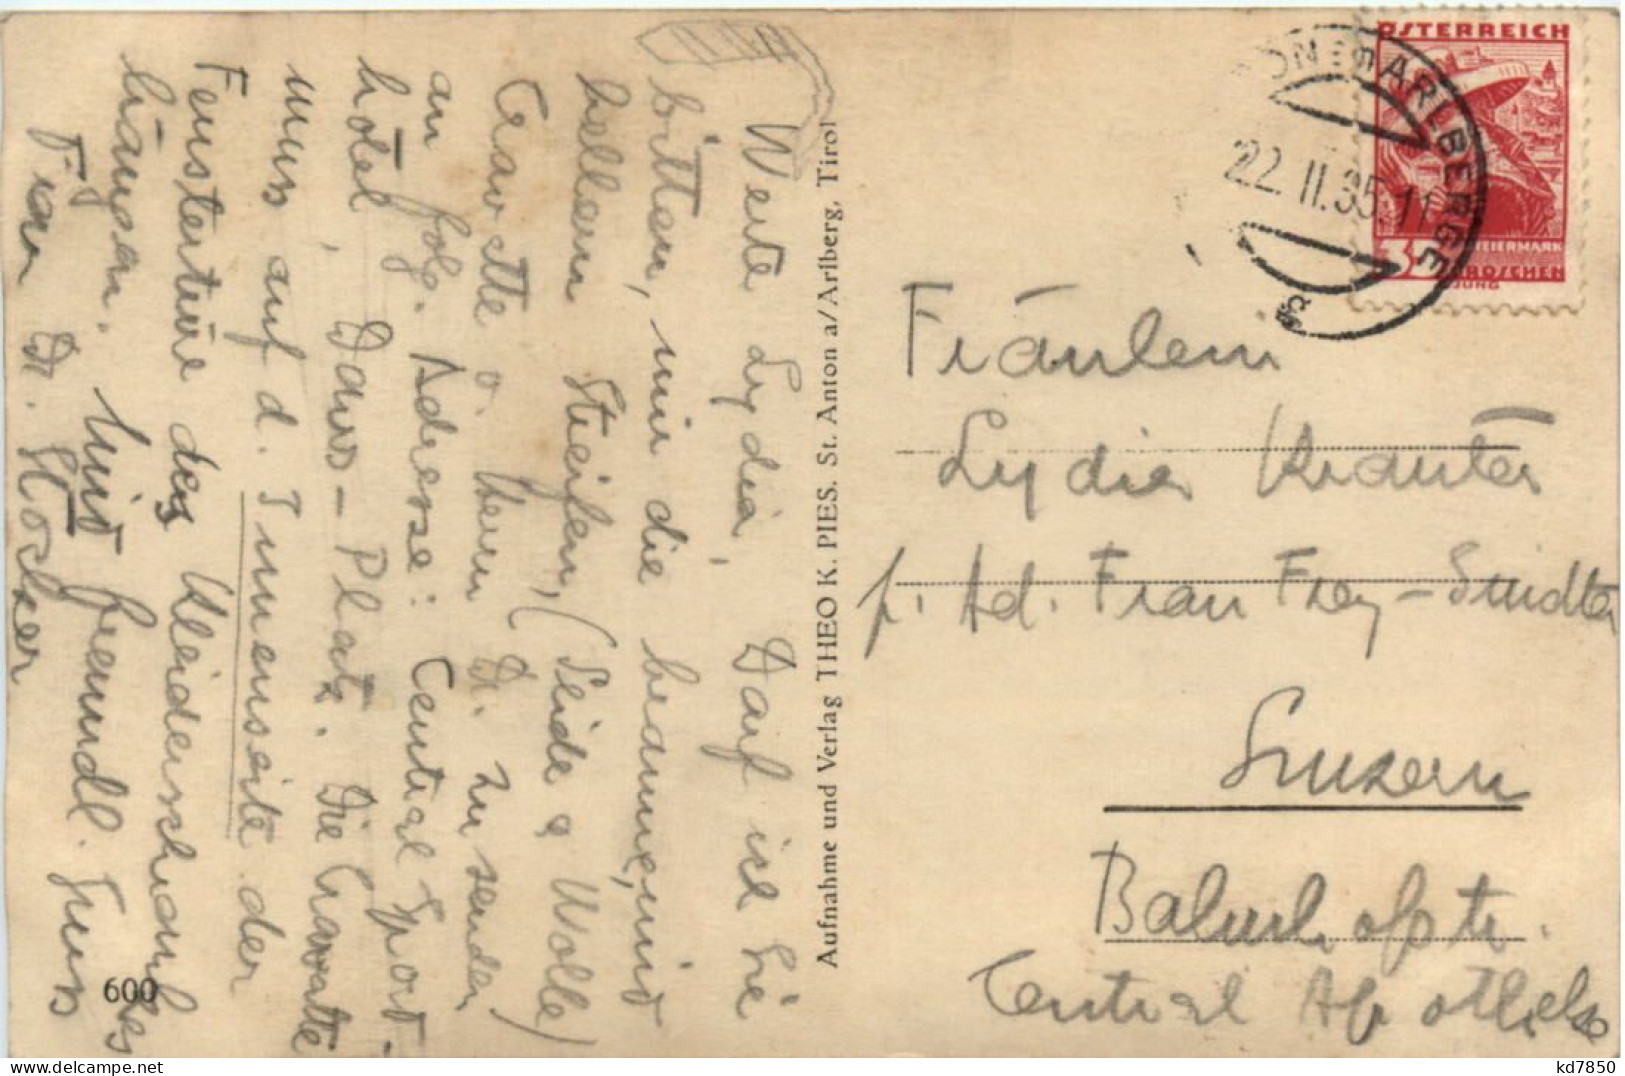 Werte Lydia, Darf ich Sie
bitten, mir die braune, mit
hellem Streifen, (Seide & Wolle)
Cravatte v. Herrn Dr. zu senden
an folg. Adresse: Central Sport-
hotel, Davos-Platz. Die Cravatte
muss auf d. Innenseite der
Fenstertüre des Kleiderschrankes
hängen. Mit freundl. Gruss
Frau Dr. Stocker
600
Aufnahme und Verlag THEO K. PIES. St. Anton a/Arlberg, Tirol
ÖSTERREICH
STEIERMARK
GROSCHEN
JUNG
ARLBERGE
22.II.35.11
Fräulein
Lydia Kräuter
p. Ad. Frau Frey-
Luzern
Bahnhofstr.
Central Apotheke
kd7850